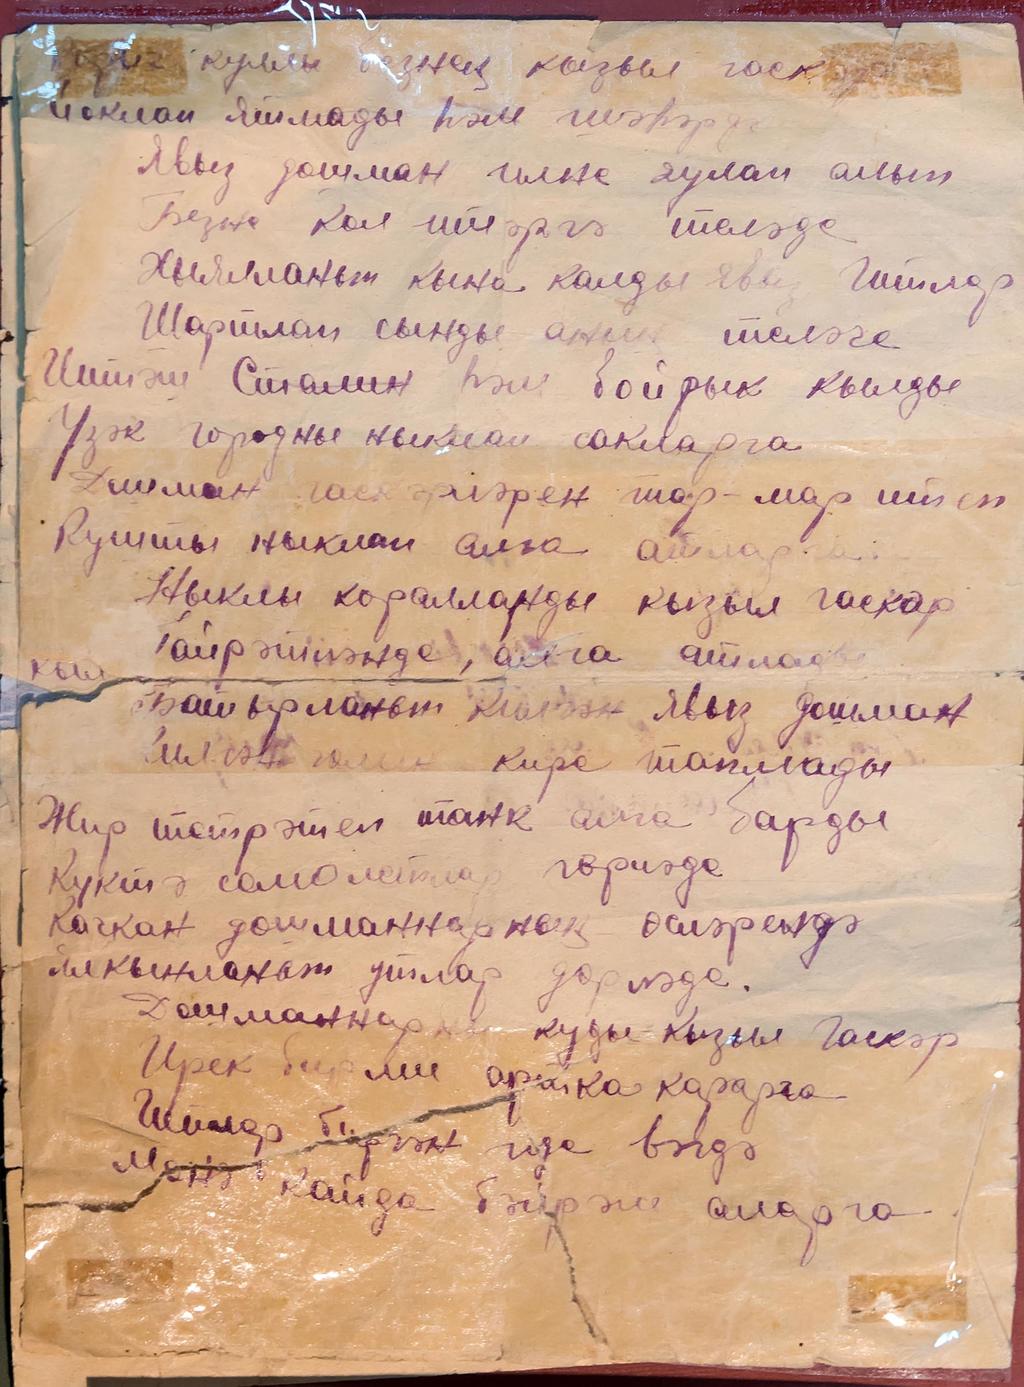 куллы безнең кызыл гаскәр
Йоклап ятмады һәм шәһәрдә
Явыз дошман илне яулап алып
Безне кол итәргә теләде
Хыялланып кына калды явыз Гитлер
Шартлап сынды аның теләге
Иптәш Сталин һәм бойрык кылды
Үзәк городны ныклап сакларга
Дошман гаскәрләрен тар-мар итеп
Кушты ныклап алга атларга.
Ныклы коралланды кызыл гаскәр
Гайрәтләнде, алга атлады
Батырланып килгән явыз дошман
кире тапмады
Жир тетрәтеп танк алга барды
Күктә самолетлар гөрләде
Качкан дошманнарның өсләрендә
Ялкынланып утлар дөрләде.
Дошманнарны куды кызыл Гаскәр
Ирек бирми артка карарга
Гитлер биргән иде вәгдә
Менә кайда бәйрәм аларга.